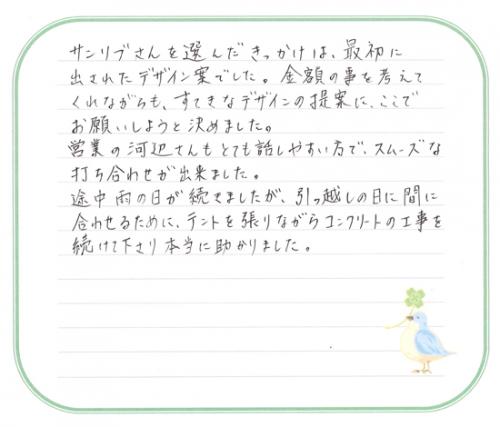 サンリブさんを選んだきっかけは、最初に
出されたデザイン案でした。金額の事を考えて
くれながらも、すてきなデザインの提案に、ここで
お願いしようと決めました。
営業の河辺さんもとても話しやすい方で、スムーズな
打ち合わせが出来ました。
途中雨の日が続きましたが、引っ越しの日に間に
合わせるために、テントを張りながらコンクリートの工事を
続けて下さり本当に助かりました。